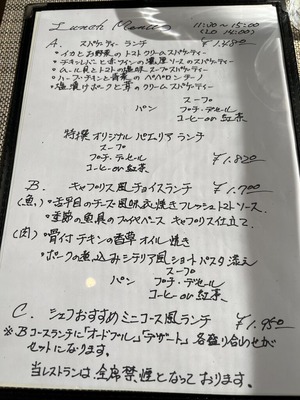 Lunch Menu 11:30~15:00
(LO 14:00)
A. スパゲティー ランチ ¥1,480
・イカとお野菜のトマトクリームスパゲティー
・チキンレバーと赤ワインの濃厚ソースのスパゲティー
・ムール貝とトマトの塩味 スープスパゲティー
・ハーブチキンと青菜の ペペロンチーノ
・塩漬けポークと茸のクリームスパゲティー
スープ
パン プチ・デセール
コーヒー or 紅茶
特撰 オリジナル パエリア ランチ
スープ
プチ・デセール ¥1,820
コーヒー or 紅茶
B. キャプリス風 チョイスランチ ¥1,700
(魚)・舌平目のチーズ風味衣焼き フレッシュトマトソース
・季節の魚貝の ブイヤベース キャプリス仕立て
(肉)・骨付チキンの香草オイル焼き
・ポークの煮込み シチリア風 ショートパスタ添え
スープ
パン プチ・デセール
コーヒー or 紅茶
C. シェフおすすめミニコース風ランチ ¥1,950
※Bコースランチに「オードブル」「デザート」各盛り合わせが
セットになります。
当レストランは全席禁煙となっております。